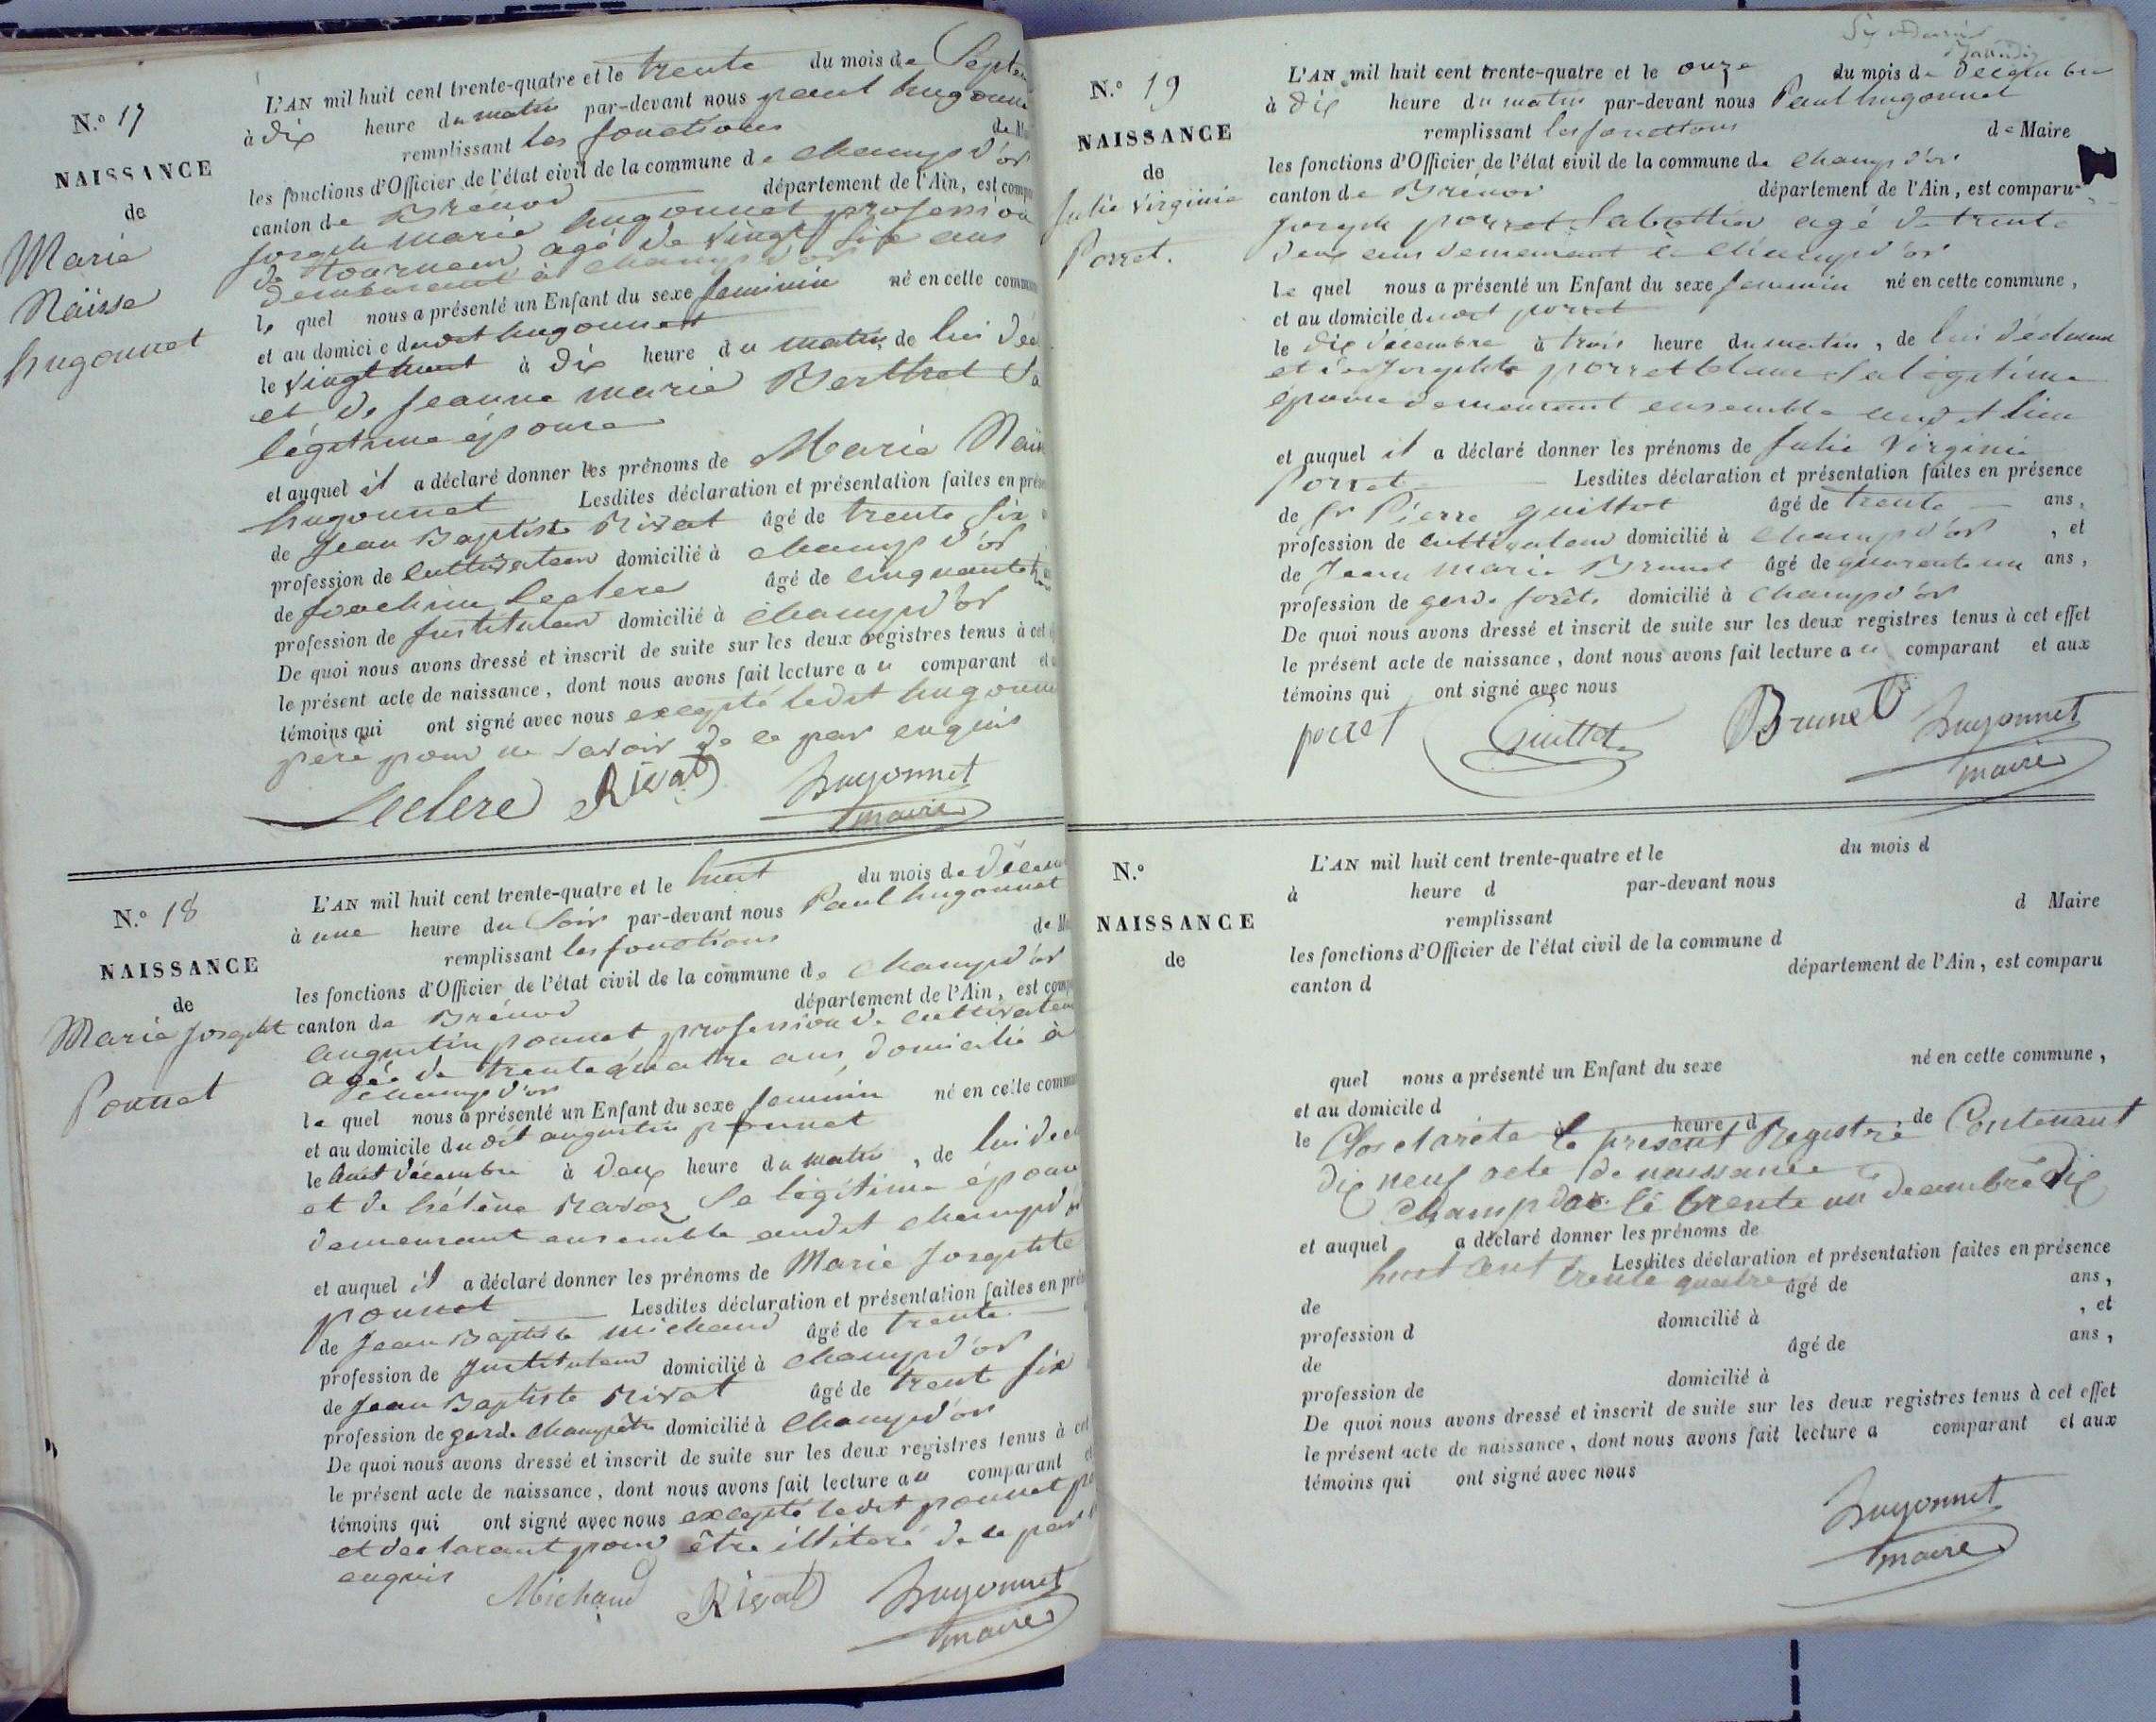 N.° 17
NAISSANCE
de
Marie
Naïsse
hugonnet
L'AN mil huit cent trente-quatre et le trente du mois de Septem
à dix heure du matin par-devant nous paul hugonne
remplissant les fonctions de M
les fonctions d'Officier de l'état civil de la commune de champ d'or
canton de Brenod département de l'Ain, est compa
joseph marie hugonnet profession
de tourneur agé de vingt six ans
demeurant à champ d'or
le quel nous a présenté un Enfant du sexe feminin né en cette commun
et au domicile dudit hugonnet
le vingt huit à dix heure du matin, de lui déc
et de jeanne marie Berthet Sa
légitime épouse
et auquel il a déclaré donner les prénoms de Marie Naïs
hugonnet Lesdites déclaration et présentation faites en prése
de Jean Baptiste Rivat âgé de trente six
profession de cultivateur domicilié à champ d'or
de joachim Leclere âgé de cinquante
profession de instituteur domicilié à champ d'or
De quoi nous avons dressé et inscrit de suite sur les deux registres tenus à cet
le présent acte de naissance, dont nous avons fait lecture au comparant et
témoins qui ont signé avec nous excepté ledit hugonne
pere pour ne Savoir de ce par enquis
Leclere Rivat hugonnet
maire
N.° 18
NAISSANCE
de
Marie josephte
Ponnet
L'AN mil huit cent trente-quatre et le huit du mois de décem
à une heure du Soir par-devant nous Paul hugonnet
remplissant les fonctions de M
les fonctions d'Officier de l'état civil de la commune de champ d'or
canton de Brénod département de l'Ain, est comp
augustin ponnet profession de cultivateur
agée de trente quatre ans, domicilié à
champ d'or
le quel nous a présenté un Enfant du sexe feminin né en cette commun
et au domicile du dit augustin ponnet
le huit décembre à deux heure du matin, de lui decl
et de hélène Savoz sa légitime épouse
demeurant ensemble audit champ d'or
et auquel il a déclaré donner les prénoms de Marie josephte
ponnet Lesdites déclaration et présentation faites en prés
de jean Baptiste michaud âgé de trente
profession de instituteur domicilié à champ d'or
de jean Baptiste Rivat âgé de trente six
profession de garde champêtre domicilié à champ d'or
De quoi nous avons dressé et inscrit de suite sur les deux registres tenus à cet
le présent acte de naissance, dont nous avons fait lecture au comparant et
témoins qui ont signé avec nous excepté ledit ponnet
et declarant pour être illitéré de ce par
enquis
Michaud Rivat hugonnet
maire
N.° 19
NAISSANCE
de
Julie Virginie
Porret.
L'AN mil huit cent trente-quatre et le onze du mois de decembre
à dix heure du matin par-devant nous Paul hugonnet
remplissant les fonctions de Maire
les fonctions d'Officier de l'état civil de la commune de champ d'or
canton de Brénod département de l'Ain, est comparu
joseph porret Sabottier agé de trente
deux ans demeurant à champ d'or
le quel nous a présenté un Enfant du sexe feminin né en cette commune,
et au domicile dudit porret
le dix décembre à trois heure du matin, de lui déclarant
et de josephte porret blanc Sa légitime
épouse demeurant ensemble audit lieu
et auquel il a déclaré donner les prénoms de Julie Virginie
Porret Lesdites déclaration et présentation faites en présence
de Sr Pierre guittot âgé de trente ans,
profession de cultivateur domicilié à champ d'or, et
de Jean marie Brunet âgé de quarante un ans,
profession de garde forêt. domicilié à champ d'or
De quoi nous avons dressé et inscrit de suite sur les deux registres tenus à cet effet
le présent acte de naissance, dont nous avons fait lecture au comparant et aux
témoins qui ont signé avec nous
porret Guittot Brunet hugonnet
maire
N.°
NAISSANCE
de
L'AN mil huit cent trente-quatre et le du mois d
à heure d par-devant nous
remplissant d Maire
les fonctions d'Officier de l'état civil de la commune d
canton d département de l'Ain, est comparu
quel nous a présenté un Enfant du sexe né en cette commune,
et au domicile d
le à heure d de
Clos et arrêté le présent Registre Contenant
dix neuf acte de naissance
Champ d'or le trente un decembre Dix
et auquel a déclaré donner les prénoms de
huit cent trente quatre
Lesdites déclaration et présentation faites en présence
de âgé de ans,
profession d domicilié à , et
de âgé de ans,
profession de domicilié à
De quoi nous avons dressé et inscrit de suite sur les deux registres tenus à cet effet
le présent acte de naissance, dont nous avons fait lecture a comparant et aux
témoins qui ont signé avec nous
hugonnet
maire